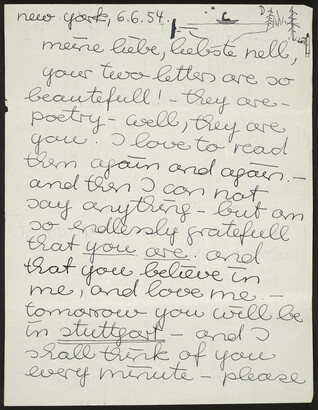 new york, 6.6.54.
meine liebe, liebste nell,
your two letters are so
beautefull! - they are -
poetry - well, they are
you. I love to read
them again and again. -
and then I can not
say anything - but am
so endlessly gratefull
that you are. and
that you believe in
me, and love me. -
tomorrow you will be
in stuttgart - and I
shall think of you
every minute - please